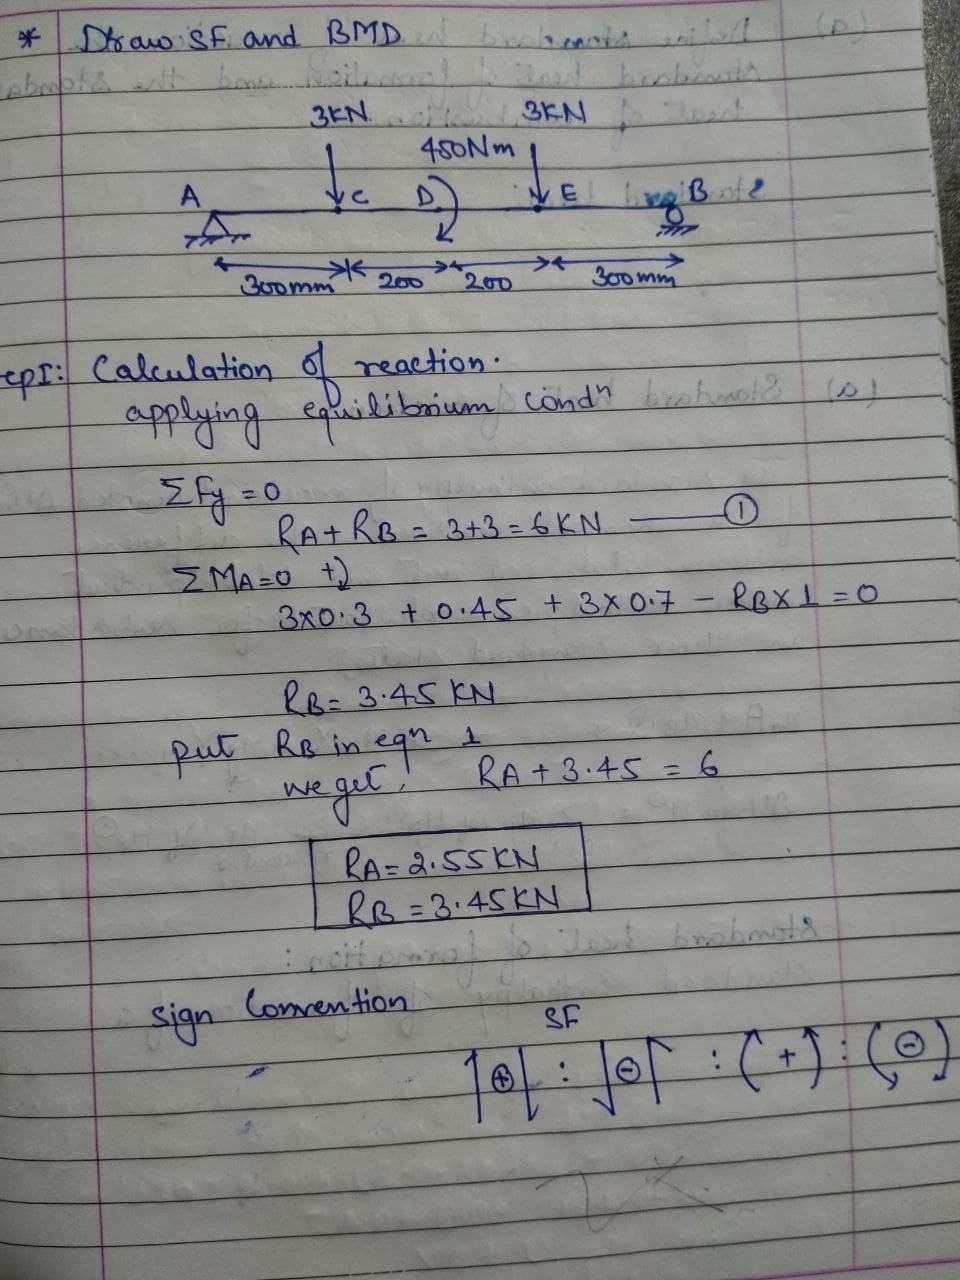 * Draw SF and BMD
3KN 3KN
450Nm
A C D E B
300mm 200 200 300mm
epI: Calculation of reaction.
applying equilibrium condn
ΣFy = 0
RA + RB = 3+3 = 6 KN — ①
ΣMA = 0 +↓
3x0.3 + 0.45 + 3x0.7 - RBx1 = 0
RB = 3.45 KN
put RB in eqn 1
we get, RA + 3.45 = 6
RA = 2.55 KN
RB = 3.45 KN
sign Convention
SF
↑⊕↓ : ↓⊖↑ : (+) : (⊖)